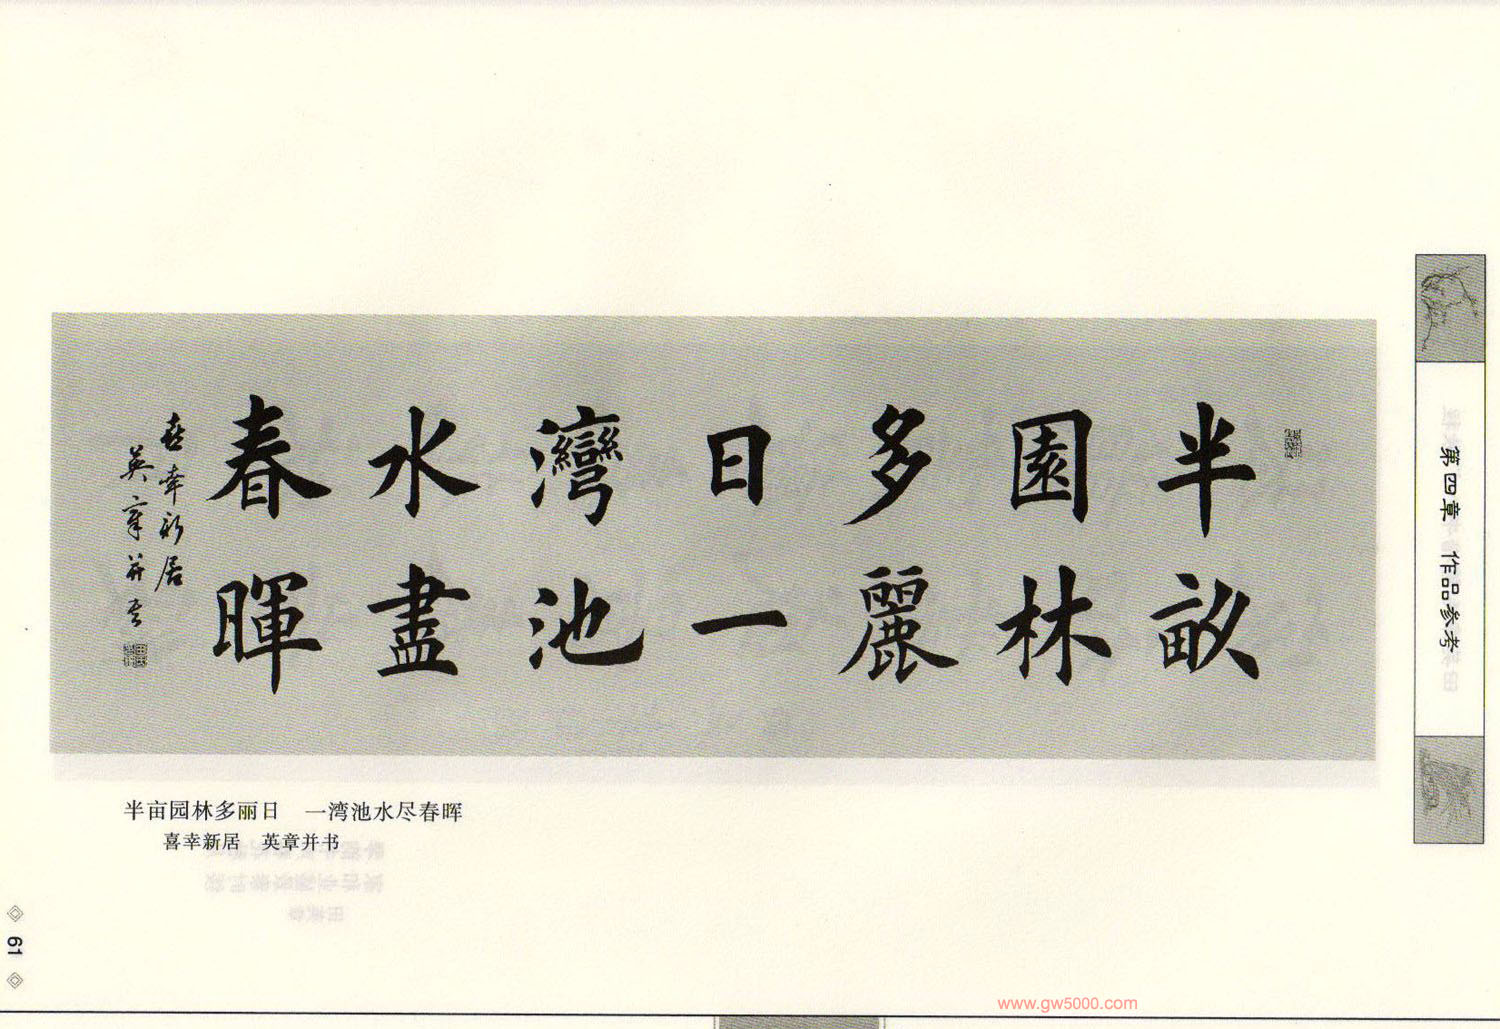 半畝
園林
多麗
日一
灣池
水盡
春暉
喜幸新居
英章并书
半亩园林多丽日　一湾池水尽春晖
喜幸新居　英章并书
第四章　作品参考
61
www.gw5000.com